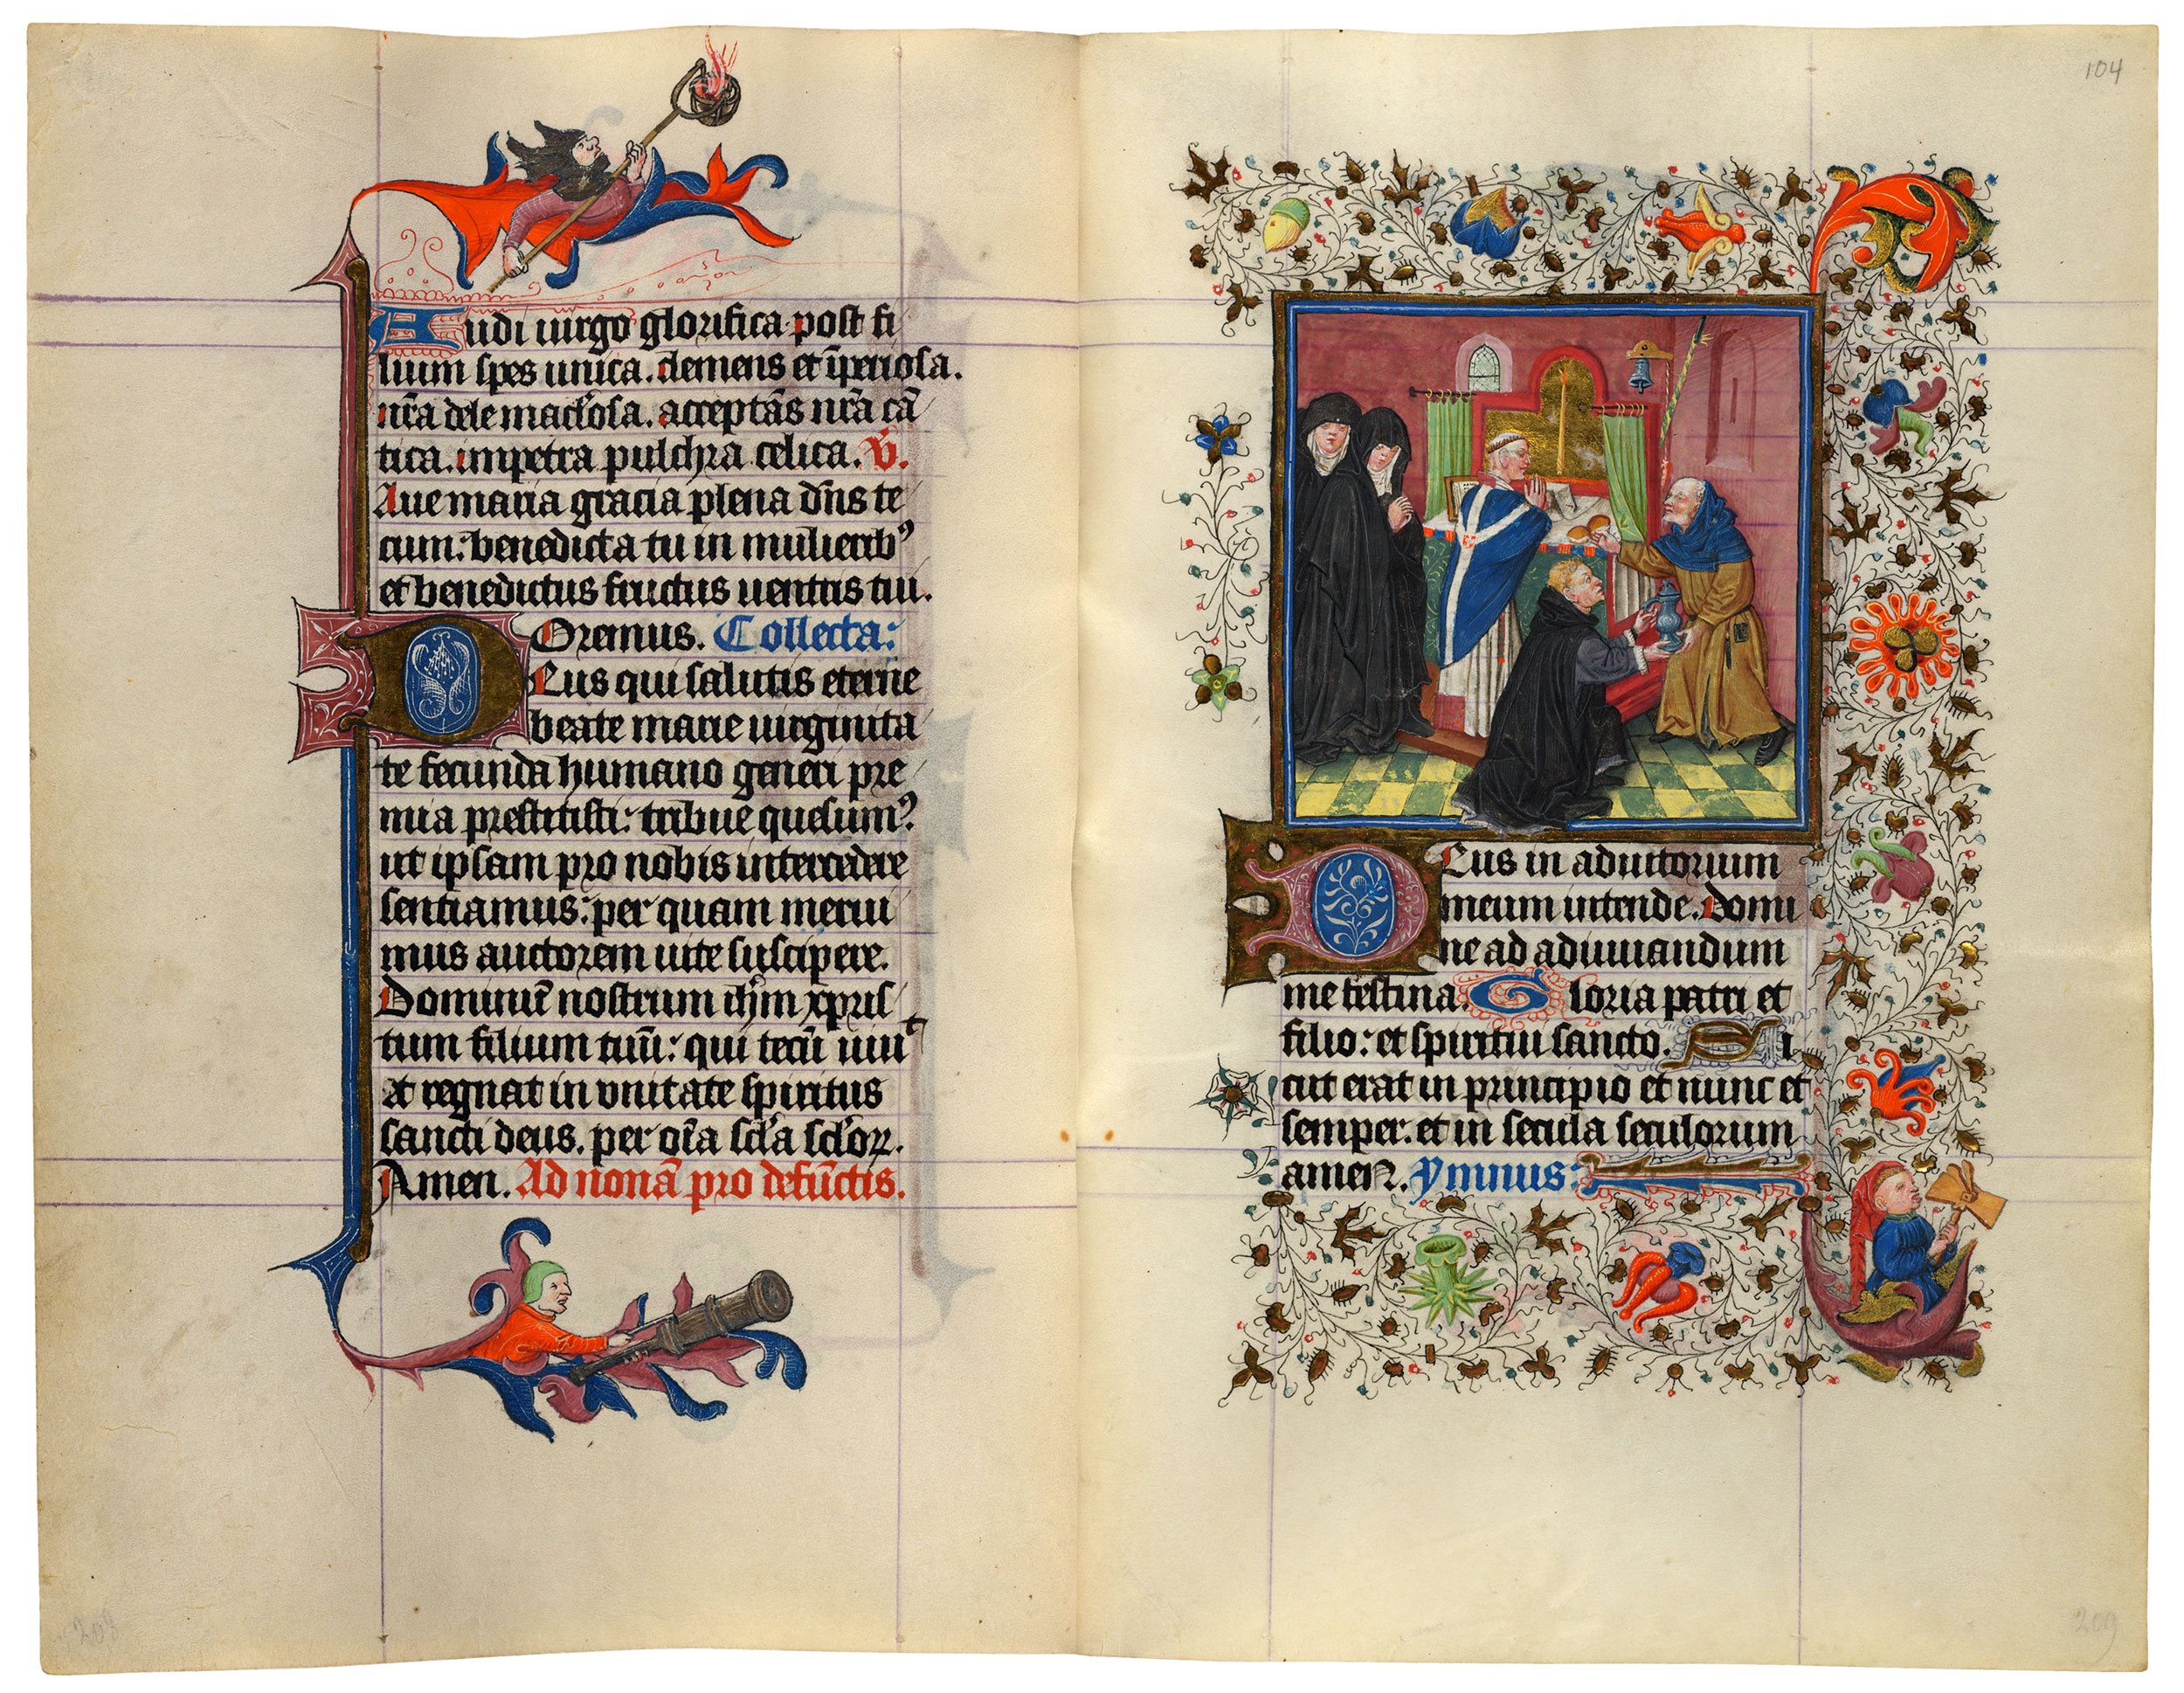 Audi uirgo glorifica post fi
lium spes unica. clemens et īperiosa.
nr̄a dele maclosa. acceptās nr̄a cā
tica. impetra pulchra celica. V̄.
Aue maria gracia plena dn̄s te
cum: benedicta tu in mulierib⁹
et benedictus fructus uentris tui.
Oremus. Collecta:
Deus qui salutis eterne
beate marie uirginita
te fecunda humano generi pre
mia prestitisti: tribue quesum⁹
ut ipsam pro nobis intercedere
sentiamus: per quam merui
mus auctorem uite suscipere.
Dominū nostrum ihm̄ xp̄is
tum filium tuū: qui tecū uiuit
et regnat in vnitate spiritus
sancti deus. per oīa scl̄a scl̄oꝝ.
Amen. Ad nonā pro defūctis.
208
104
Deus in adiutorium
meum intende. Domi
ne ad adiuuandum
me festina. Gloria patri et
filio: et spiritui sancto. Si
cut erat in principio et nunc et
semper. et in secula seculorum
amen. Ymnus:
209